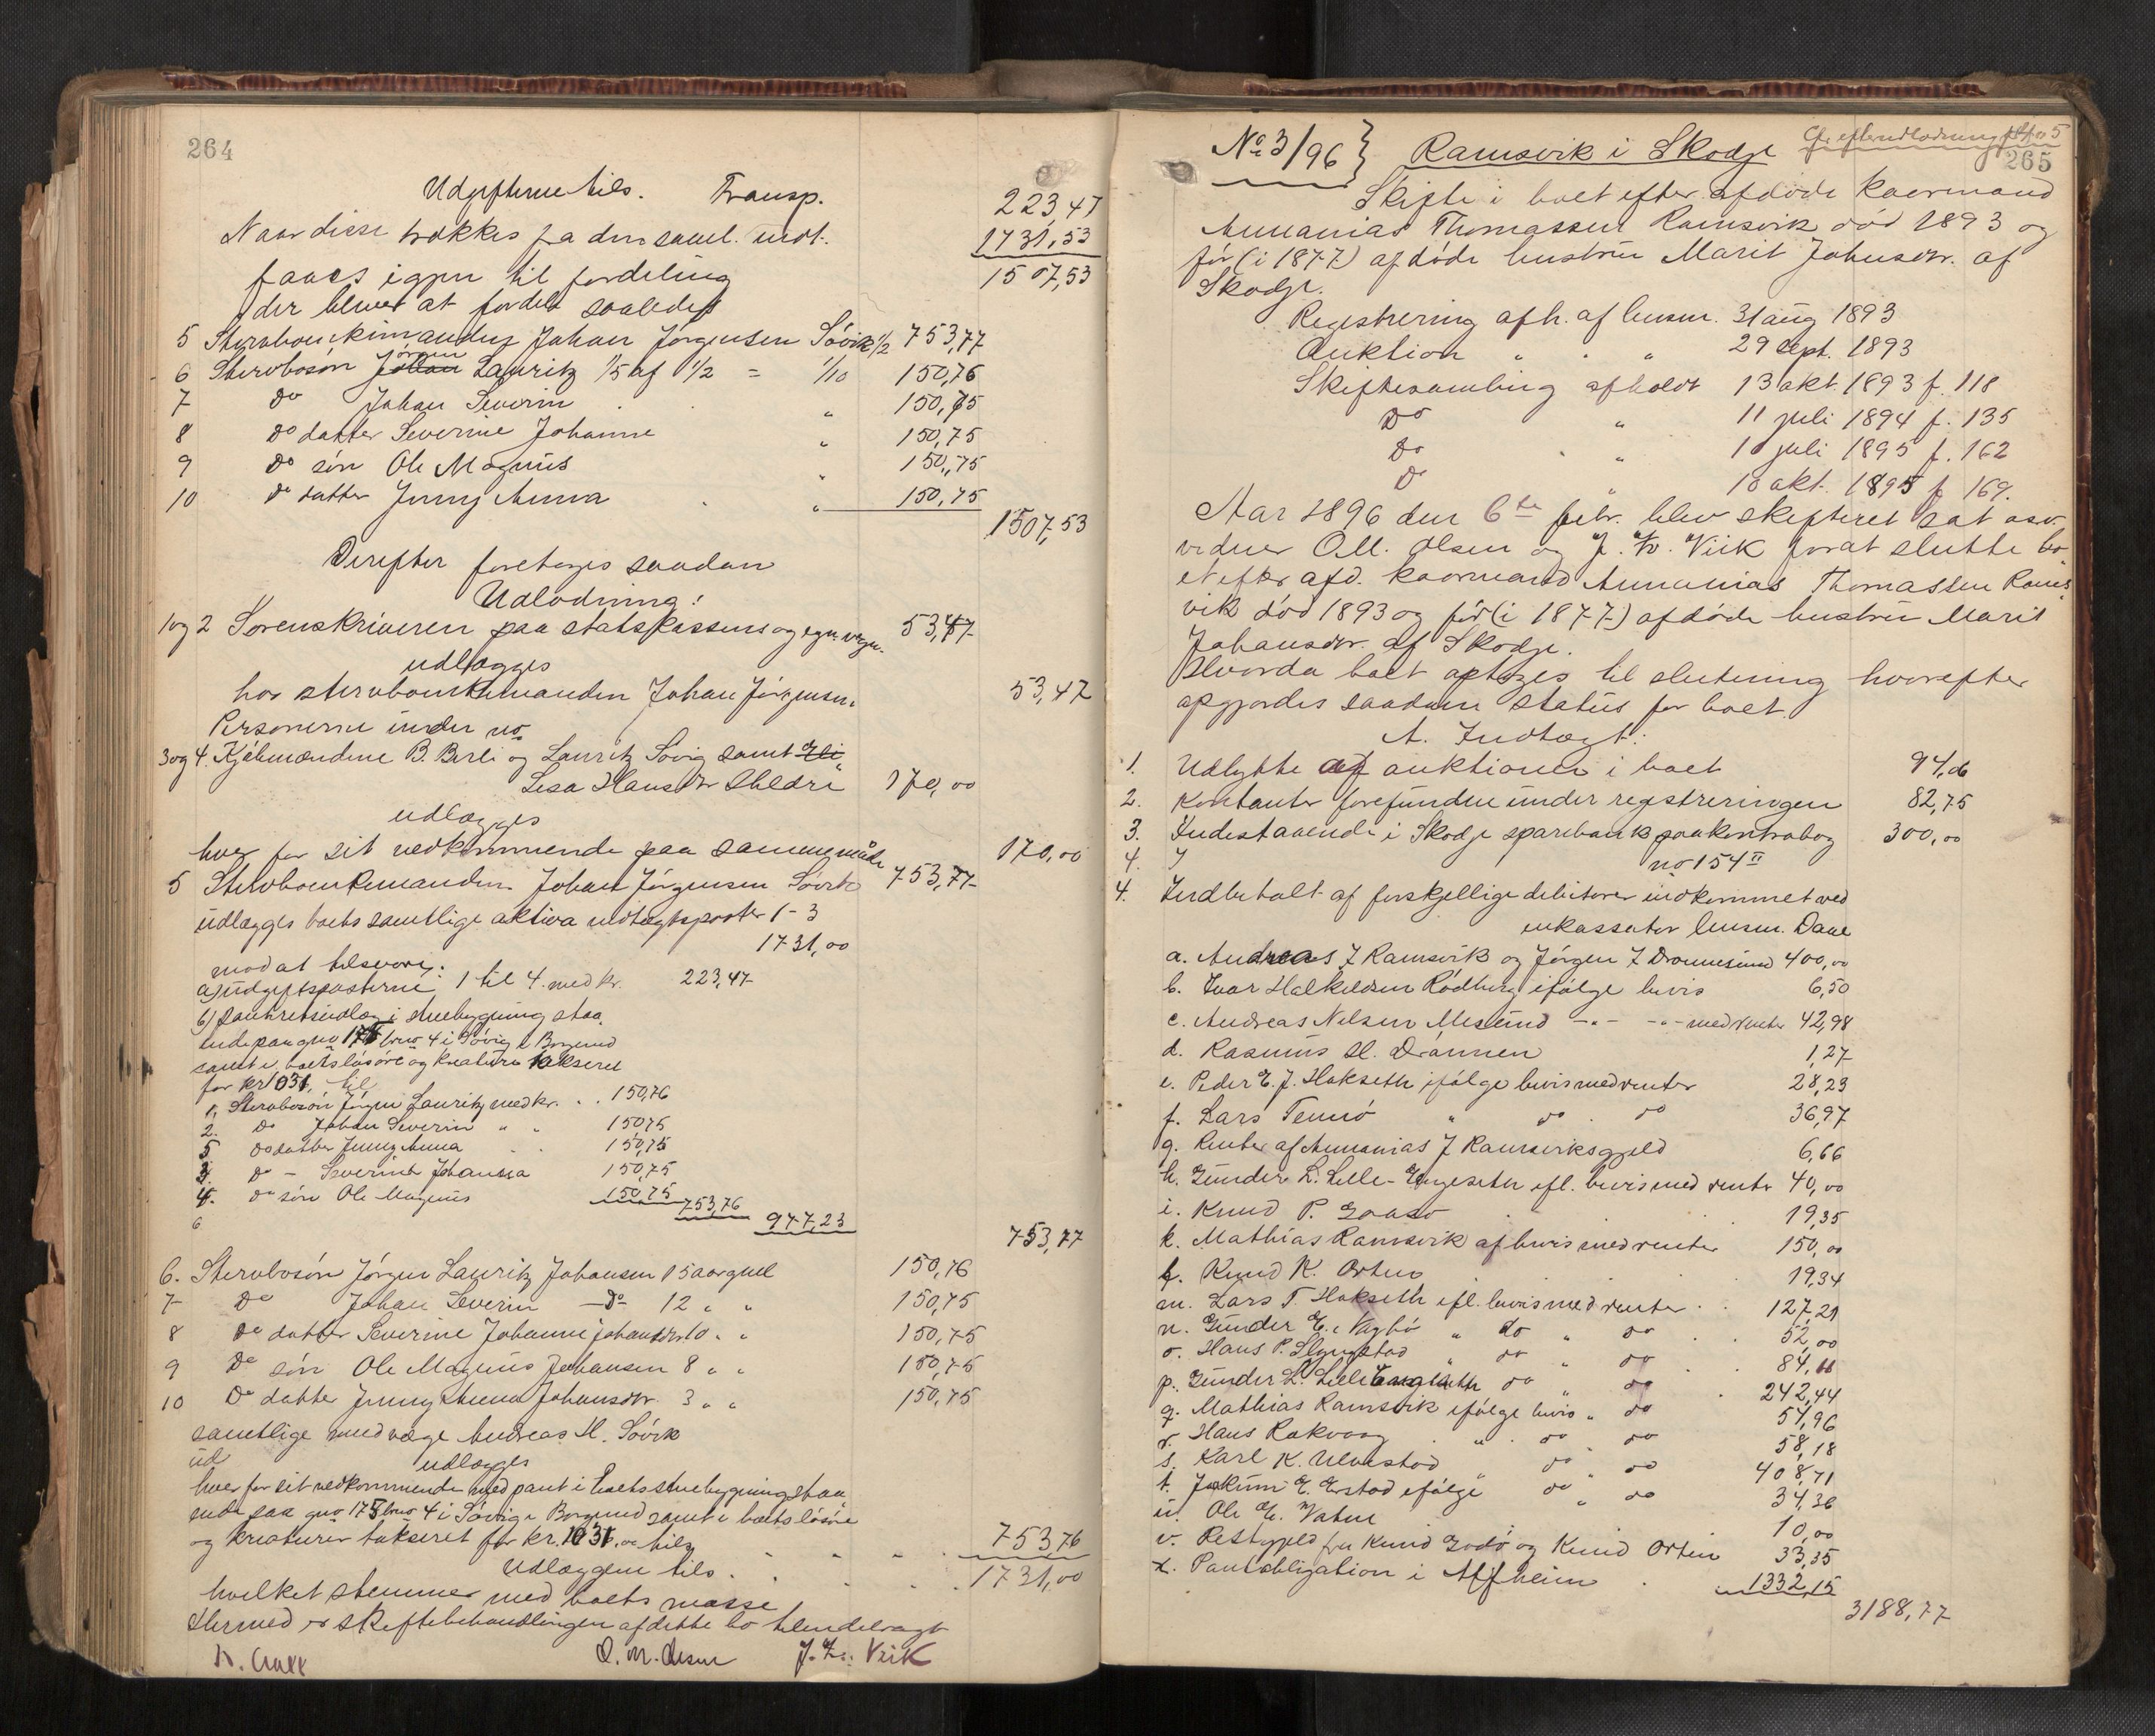 264
Udgifterne tils. Transp. 223,47
Naar disse trækkes fra den saml. indt. 1731,53
faaes igjen til fordeling 1507,53
der bliver at fordele saaledes
5 Stervboenkemanden Johan Jørgensen Søvik 1/2 753,77
6 Stervbosøn Jørgen Lauritz 1/5 af 1/2 = 1/10 150,76
7 Do Johan Severin " 150,75
8 Do datter Severine Johanne " 150,75
9 Do søn Ole Magnus " 150,75
10 Do datter Jenny Anna " 150,75
1507,53
Derefter foretoges saadan
Udlodning:
1 og 2 Sorenskriveren paa statskassens og egne vegne 53,47
udlægges
hos stervboenkemanden Johan Jørgensen 53,47
Personerne under no
3 og 4. Kjøbmændene B. Berli og Lauritz Søvig samt
Lisa Hansdr 170,00
udlægges
hver for sit vedkommende paa samme måde 170,00
5 Stervboenkemanden Johan Jørgensen Søvik 753,77
udlægges boets samtlige aktiva indtægtsposter 1-3
1731,00
mod at tilsvare:
a) udgiftsposterne 1 til 4 med kr. 223,47
b) panteretsudlæg i stuebygning staa
ende paa gno 175 brno 4 i Søvig i Borgund
samt i boets løsøre og kreature takseret
for kr 1031, til
1, Stervbosøn Jørgen Lauritz med kr. . . 150,76
2. Do Johan Severin " " 150,75
5 Do datter Jenny Anna 150,75
3. Do - Severine Johanna 150,75
4. Do søn Ole Magnus 150,75 753,76
6 977,23
753,77
6. Stervbosøn Jørgen Lauritz Johansen 15 aar gml 150,76
7 Do Johan Severin - Do - 12 " " 150,75
8 Do datter Severine Johanne Johansdr 10 " " 150,75
9 Do søn Ole Magnus Johansen 8 " " 150,75
10 Do datter Jenny Anna Johansdr. 3 " " 150,75
samtlige med værge Andreas H. Søvik
ud
udlægges
hver for sit vedkommende med pant i boets stuebygning staa
ende paa gno 175 brno 4 i Søvig i Borgund samt i boets løsøre
og kreaturer takseret for kr. 1031,00 tils 753,76
Udlæggen tils. 1731,00
hvilket stemmer med boets masse
Hermed er skiftebehandlingen af dette bo tilendebragt
O. M. Olsen J. Vik
No 3/96 } Ramsvik i Skodje
265
Skifte i boet efter afdøde kaarmand
Annanias Thomassen Ramsvik død 1893 og
før (i 1877) afdøde hustru Marit Johnsdr. af
Skodje.
Registrering afh. af lensm. 31 aug 1893
Auktion " " " 29 sept. 1893
Skiftesamling afholdt 13 okt 1893 f. 118
Do " 11 juli 1894 f. 135
Do " 10 juli 1895 f. 162
Do " 18 okt. 1895 f. 169.
Aar 1896 den 6te febr. blev skifteret sat osv.
vidner O.M. Olsen og J. Vik forat slutte bo
et efter afd. kaarmand Annanias Thomassen Rams
vik død 1893 og før (i 1877) afdøde hustru Marit
Johansdr. af Skodje.
Hvorda boet optoges til slutning hvorefter
opgjordes saadan status for boet
A. Indtægt:
1. Udbytte af auktionen i boet 94,06
2. Kontanter forefundne under registreringen 82,75
3. Indestaaende i Skodje sparebank paa kontrabog 300,00
4. no 154 II
4. Indbetalt af forskjellige debitorer indkommet ved
inkassator lensm. Dahl
a. Andreas J Ramsvik og Jørgen J Dronnesund 400,00
b. Ivar Halkildsen Rødberg ifølge bevis 6,50
c. Andreas Nelsen Mesund -"- -"- med renter 42,98
d. Rasmus H. Drønnen 1,27
e. Peder E. J. Hokseth ifølge bevis med renter 28,23
f. Lars Tennø " Do Do 36,97
g. Renter af Annanias J Ramsviksgjeld 6,66
h. Gunder L. Lille-Engeseth ifl. bevis med renter 40,00
i. Knud P. Goasø 19,35
k. Mathias Ramsvik af bevis med renter 150,00
l. Knud K. Orten 19,34
m. Lars T. Hokseth ifl. bevis med renter 127,29
n. Gunder E. Vagbø " do " do 52,00
o. Hans P. Slyngstad " do " do 84,11
p. Gunder L. Lille Engeseth do " do 242,44
q. Mathias Ramsvik ifølge bevis " do 54,96
r. Hans Rakvaag " do do 58,18
s. Karl K. Ulvestad do do 408,71
t. Joakim E. Erstad ifølge do do 34,36
u. Ole E. Vatne 10,00
v. Restgjeld fra Knud Godø og Knud Orten 33,35
x. Pantobligation i Alfheim 1332,15
3188,77